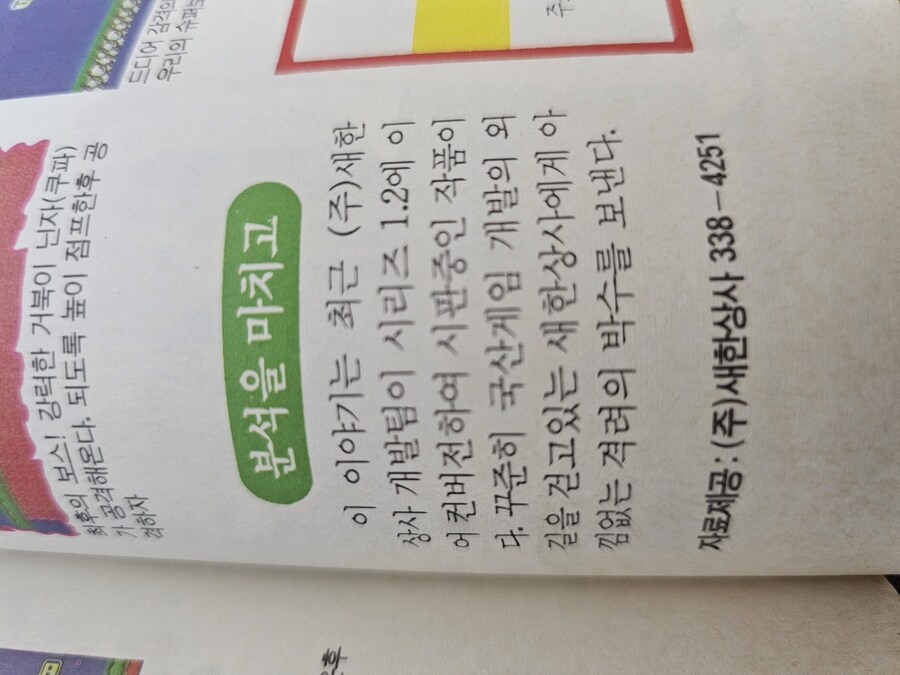 드디어 감격의
우리의 슈퍼보
최후의 보스! 강력한 거북이 닌자(쿠파)
가 공격해온다. 되도록 높이 점프한후 공
격하자
분석을 마치고
이 이야기는 최근 (주)새한
상사 개발팀이 시리즈 1.2에 이
어 컨버전하여 시판중인 작품이
다. 꾸준히 국산게임 개발의 외
길을 걷고있는 새한상사에게 아
낌없는 격려의 박수를 보낸다.
자료제공 : (주)새한상사 338-4251